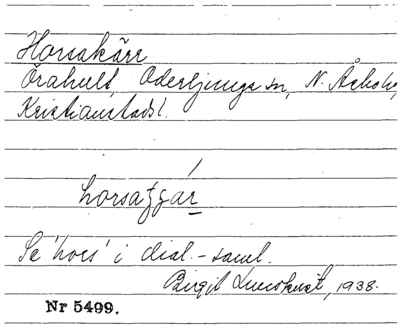 Horsakärr
Örahult, Oderljunga sn, N. Åsbo hd,
Kristianstads l.
Se 'hors' i dial.-saml.
Birgit Lundkvist, 1938.
Nr 5499.